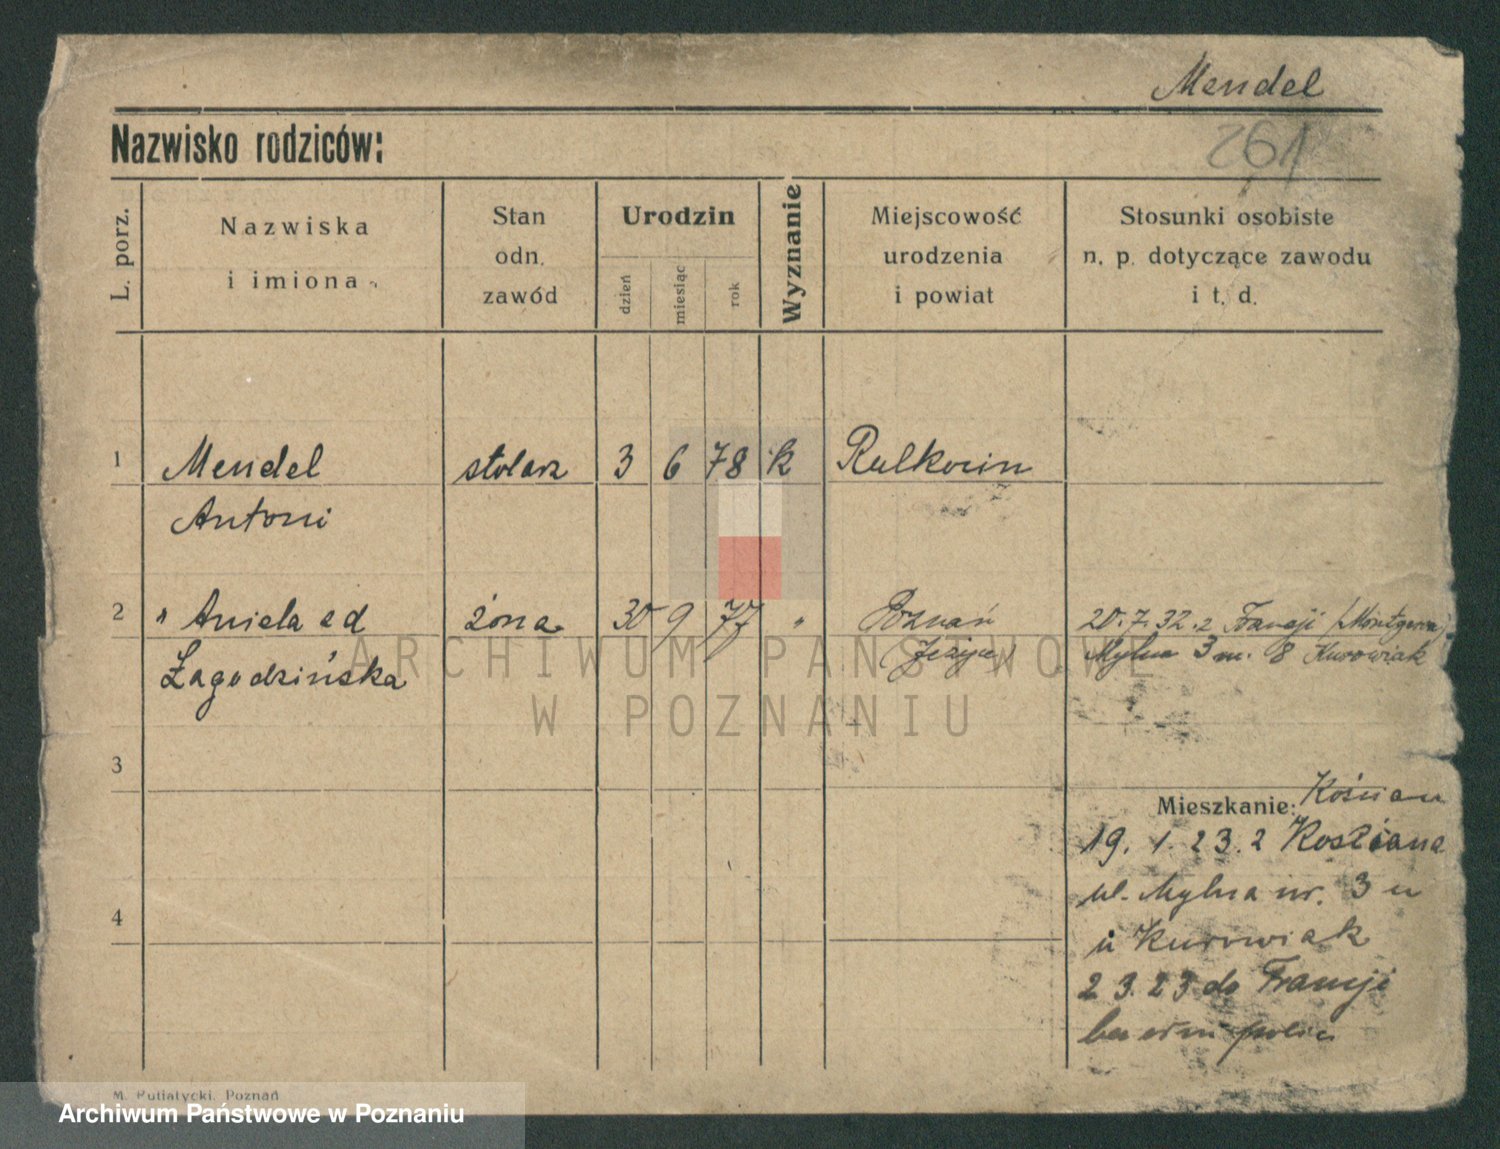 Mendel
Nazwisko rodziców:
261
L. porz.
Nazwiska
i imiona
Stan
odn.
zawód
Urodzin
dzień
miesiąc
rok
Wyznanie
Miejscowość
urodzenia
i powiat
Stosunki osobiste
n. p. dotyczące zawodu
i t. d.
1 Mendel stolarz 3 6 78 k
Antoni
2 " Aniela żona 30 9 77 " Poznań 20.7.32. z Francji
Łagodzińska (Jeżyce) Mylna 3 m. 8 Kurowiak
3
Mieszkanie:
19. 1. 23. z
ul. Mylna nr. 3
u Kurowiak
2 3. 23 do Francji
4
ARCHIWUM PAŃSTWOWE
W POZNANIU
M. Putiatycki, Poznań
Archiwum Państwowe w Poznaniu